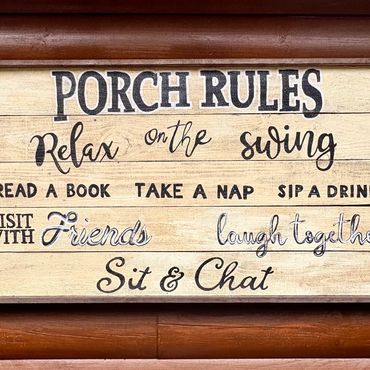 PORCH RULES
Relax on the swing
READ A BOOK TAKE A NAP SIP A DRIN
ISIT WITH Friends laugh togethe
Sit & Chat